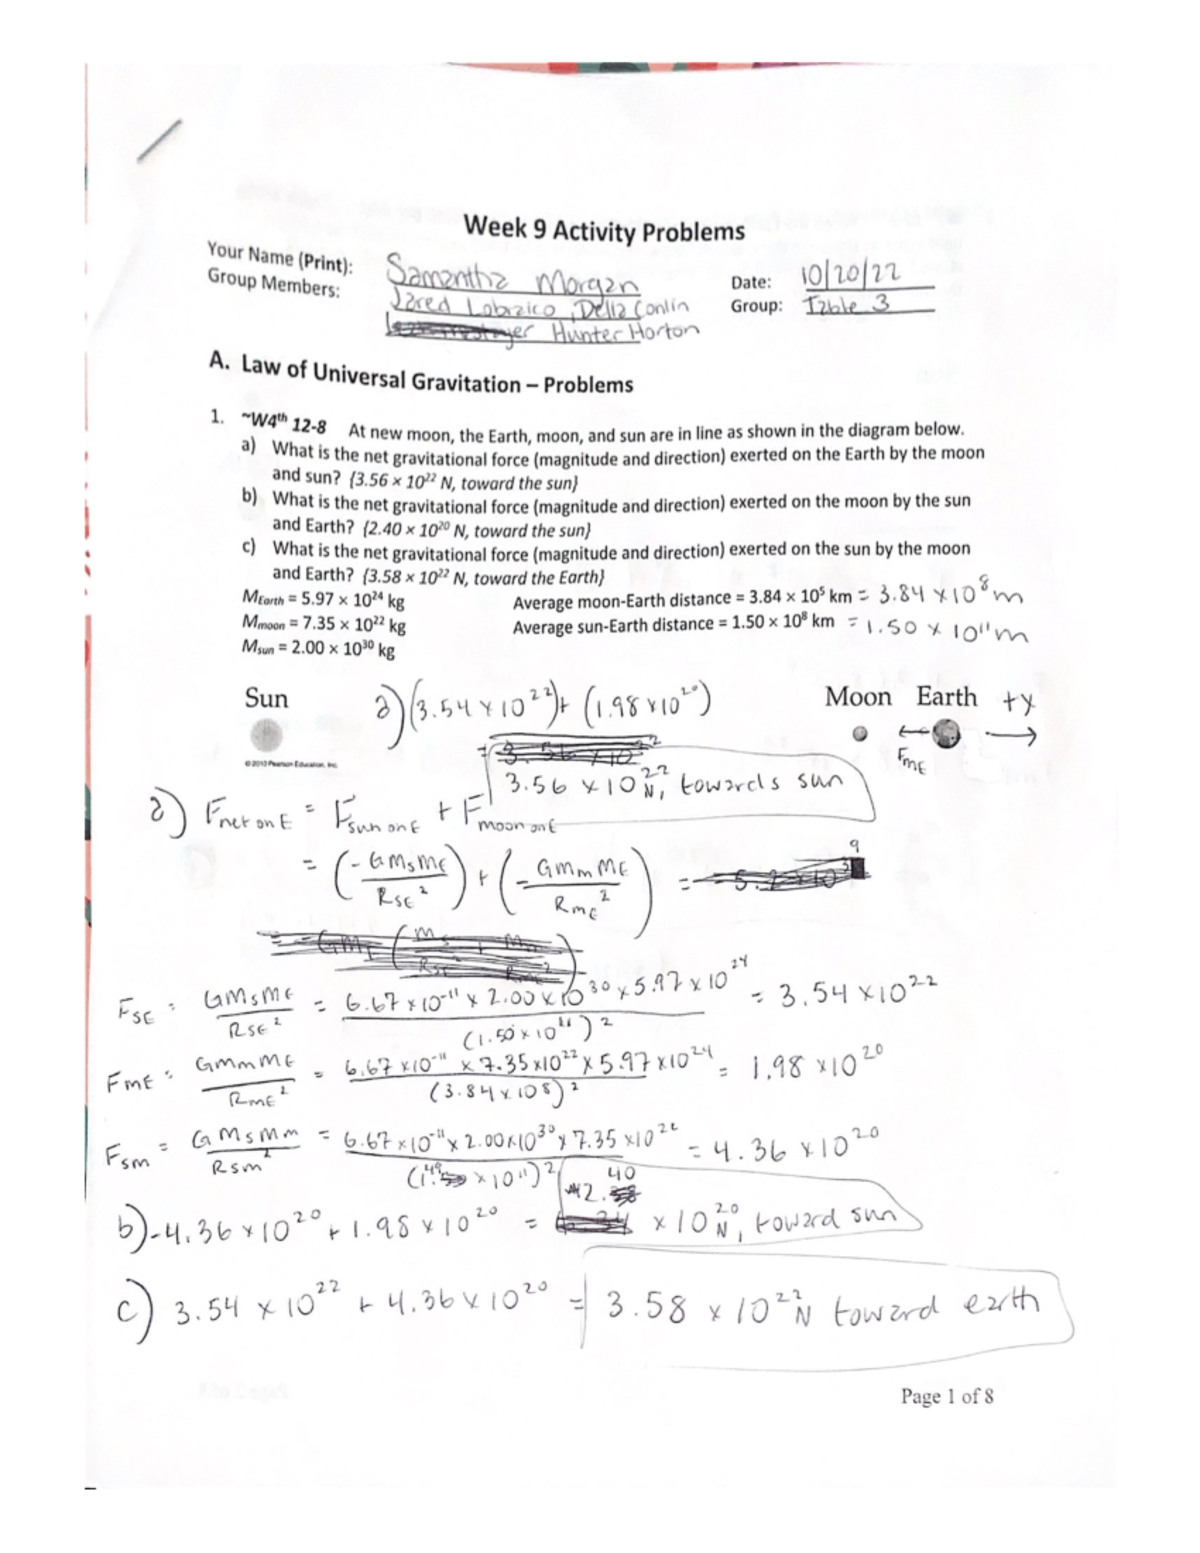 Week 9 Activity Problems
Your Name (Print): Samantha Morgan
Date: 10/20/22
Group Members: Jared Lobraico, Della Conlin
Group: Table 3
Hunter Horton
A. Law of Universal Gravitation – Problems
1. ~W4th 12-8 At new moon, the Earth, moon, and sun are in line as shown in the diagram below.
a) What is the net gravitational force (magnitude and direction) exerted on the Earth by the moon
and sun? {3.56 × 10²² N, toward the sun}
b) What is the net gravitational force (magnitude and direction) exerted on the moon by the sun
and Earth? {2.40 × 10²⁰ N, toward the sun}
c) What is the net gravitational force (magnitude and direction) exerted on the sun by the moon
and Earth? {3.58 × 10²² N, toward the Earth}
MEarth = 5.97 × 10²⁴ kg Average moon-Earth distance = 3.84 × 10⁵ km = 3.84 × 10⁸ m
Mmoon = 7.35 × 10²² kg Average sun-Earth distance = 1.50 × 10⁸ km = 1.50 × 10¹¹ m
Msun = 2.00 × 10³⁰ kg
Sun a) (3.54 × 10²²) + (1.98 × 10²⁰) Moon Earth +x
FmE
© 2013 Pearson Education, Inc.
= 3.56 × 10²² N, towards sun
a) Fnet on E = Fsun on E + Fmoon on E
= (-GMsME/RSE²) + (-GMmME/RmE²) =
FSE = GMsME/RSE² = 6.67 × 10⁻¹¹ × 2.00 × 10³⁰ × 5.97 × 10²⁴/(1.50 × 10¹¹)² = 3.54 × 10²²
FmE = GMmME/RmE² = 6.67 × 10⁻¹¹ × 7.35 × 10²² × 5.97 × 10²⁴/(3.84 × 10⁸)² = 1.98 × 10²⁰
Fsm = GMsMm/Rsm² = 6.67 × 10⁻¹¹ × 2.00 × 10³⁰ × 7.35 × 10²²/(1.49 × 10¹¹)² = 4.36 × 10²⁰
b) -4.36 × 10²⁰ + 1.98 × 10²⁰ = 2.40 × 10²⁰ N, toward sun
c) 3.54 × 10²² + 4.36 × 10²⁰ = 3.58 × 10²² N toward earth
Page 1 of 8